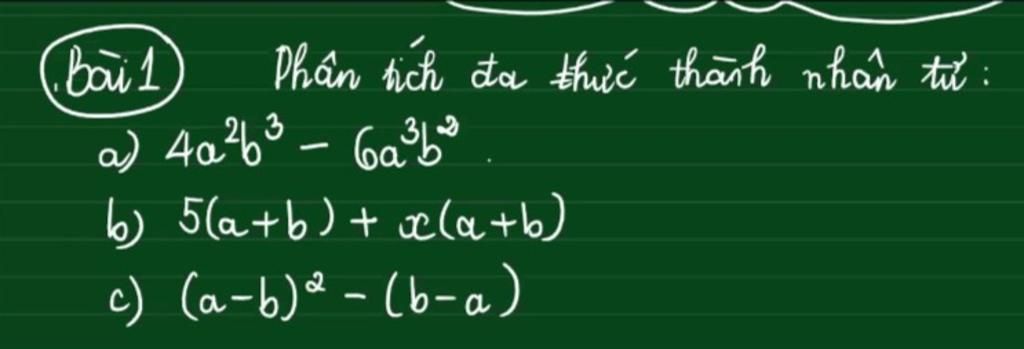 Bài 1 Phân tích đa thức thành nhân tử :
a) 4a²b³ - 6a³b² .
b) 5(a+b) + x(a+b)
c) (a-b)² - (b-a)